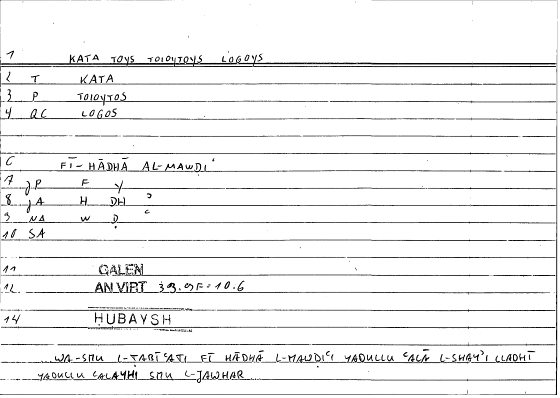 1 KATA TOYS TOIOYTOYS LOGOYS
2 T KATA
3 P TOIOYTOS
4 QC LOGOS
6 FĪ-HĀDHĀ AL-MAWḌIʿ
7 JP F Y
8 JA H DH ʾ
9 NA W Ḍ ʿ
10 SA
11 GALEN
12 AN VIRT 39.9F=10.6
14 HUBAYSH
WA-SMU L-ṬABĪʿATI FĪ HĀDHĀ L-MAWḌIʿI YADULLU ʿALĀ L-SHAYʾI LLADHĪ
YADULLU ʿALAYHI SMU L-JAWHAR